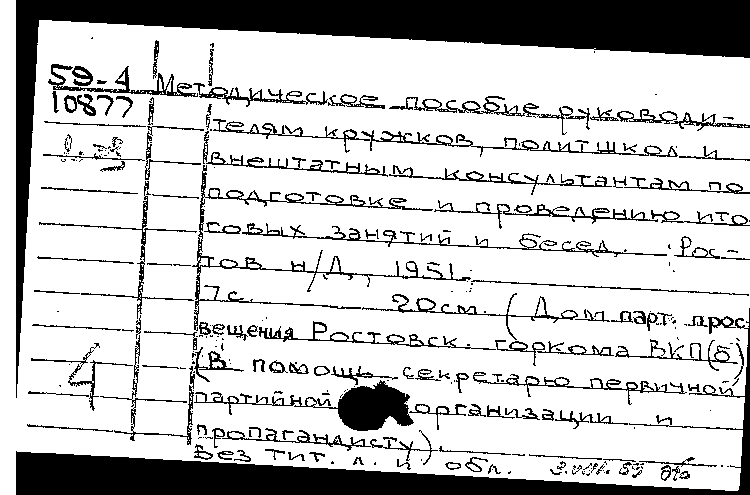 59-4 Методическое пособие руководи-
10877 телям кружков, политшкол и
внештатным консультантам по
подготовке и проведению ито
говых занятий и бесед. Рос-
тов н/Д., 1951.
7 с. 20 см. (Дом парт. прос
вещения Ростовск. горкома ВКП(б)
(В помощь секретарю первичной
4 партийной организации и
пропагандисту).
Без тит. л. и обл. 3.VIII.59